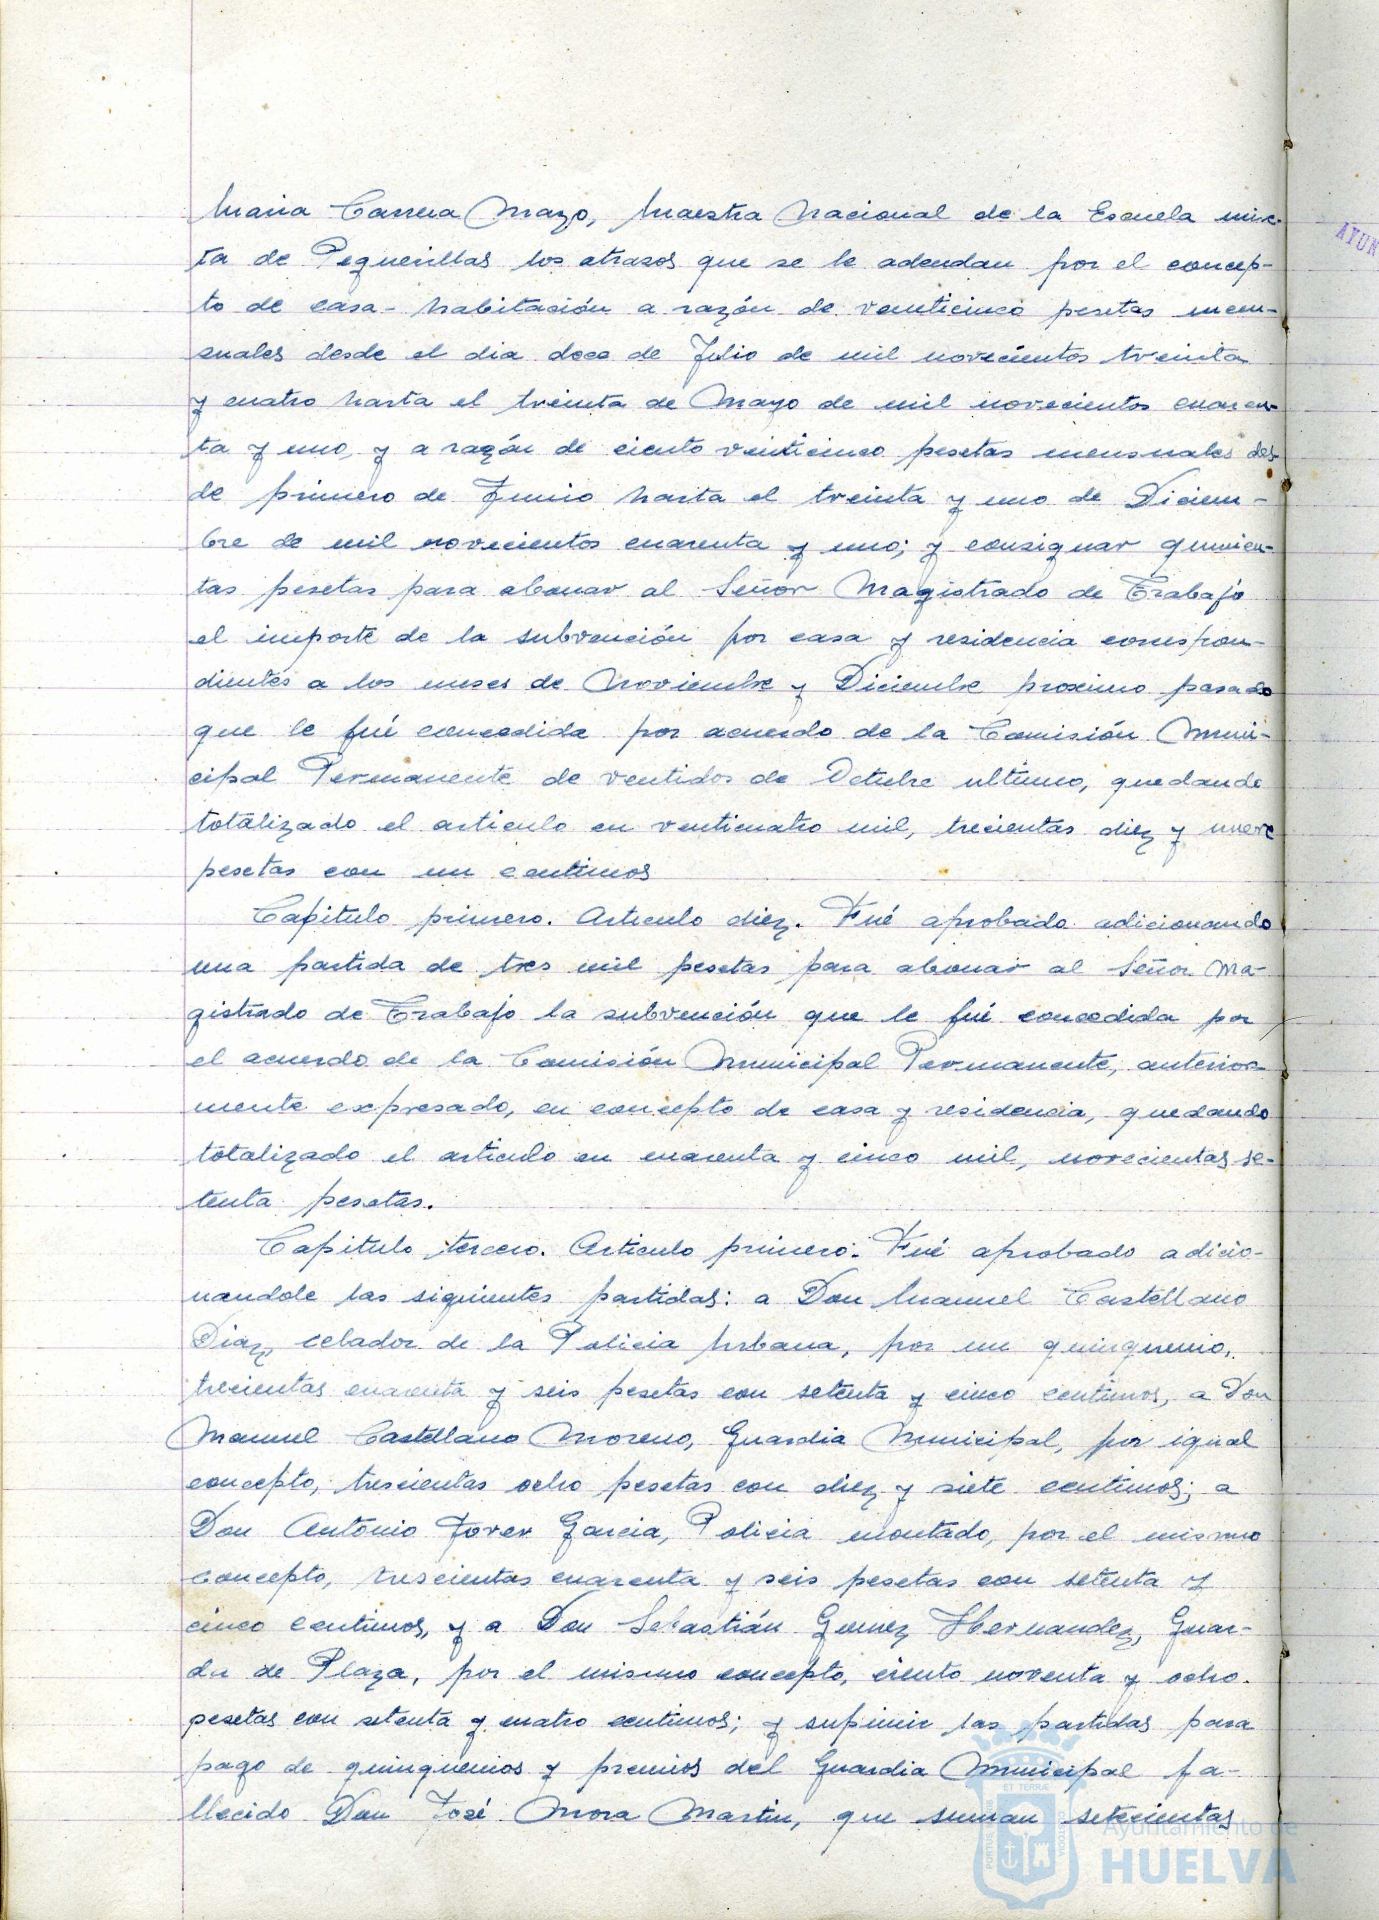 Maria Carrera Mazo, Maestra Nacional de la Escuela mix-
ta de Pequerillas los atrasos que se le adeudan por el concep-
to de casa-habitación a razón de venticinco pesetas men-
suales desde el dia doce de Julio de mil novecientos treinta
y cuatro hasta el treinta de Mayo de mil novecientos cuaren-
ta y uno, y a razón de ciento venticinco pesetas mensuales des-
de primero de Junio hasta el treinta y uno de Diciem-
bre de mil novecientos cuarenta y uno; y consignar quinien-
tas pesetas para abonar al Señor Magistrado de Trabajo
el importe de la subvención por casa y residencia correspon-
dientes a los meses de Noviembre y Diciembre proximo pasado
que le fué concedida por acuerdo de la Comisión Muni-
cipal Permanente de ventidos de Octubre ultimo, quedando
totalizado el articulo en venticuatro mil, trecientas diez y nueve
pesetas con un centimos
Capitulo primero. Articulo diez. Fué aprobado adicionando
una partida de tres mil pesetas para abonar al Señor Ma-
gistrado de Trabajo la subvención que le fué concedida por
el acuerdo de la Comisión Municipal Permanente, anterior-
mente expresado, en concepto de casa y residencia, quedando
totalizado el articulo en cuarenta y cinco mil, novecientas se-
tenta pesetas.
Capitulo tercero. Articulo primero. Fué aprobado adicio-
nandole las siguientes partidas: a Don Manuel Castellano
Diaz, celador de la Policia Urbana, por un quinquenio,
trecientas cuarenta y seis pesetas con setenta y cinco centimos, a Don
Manuel Castellano Moreno, Guardia Municipal, por igual
concepto, trescientas ocho pesetas con diez y siete centimos; a
Don Antonio Tover Garcia, Policia montado, por el mismo
concepto, trescientas cuarenta y seis pesetas con setenta y
cinco centimos, y a Don Sebastián Gomez Hernandez, Guar-
da de Plaza, por el mismo concepto, ciento noventa y ocho
pesetas con setenta y cuatro centimos; y supimir las partidas para
pago de quinquenios y premios del Guardia Municipal fa-
llecido Don José Mora Martin, que suman setecientas
AYUN
Ayuntamiento de
HUELVA